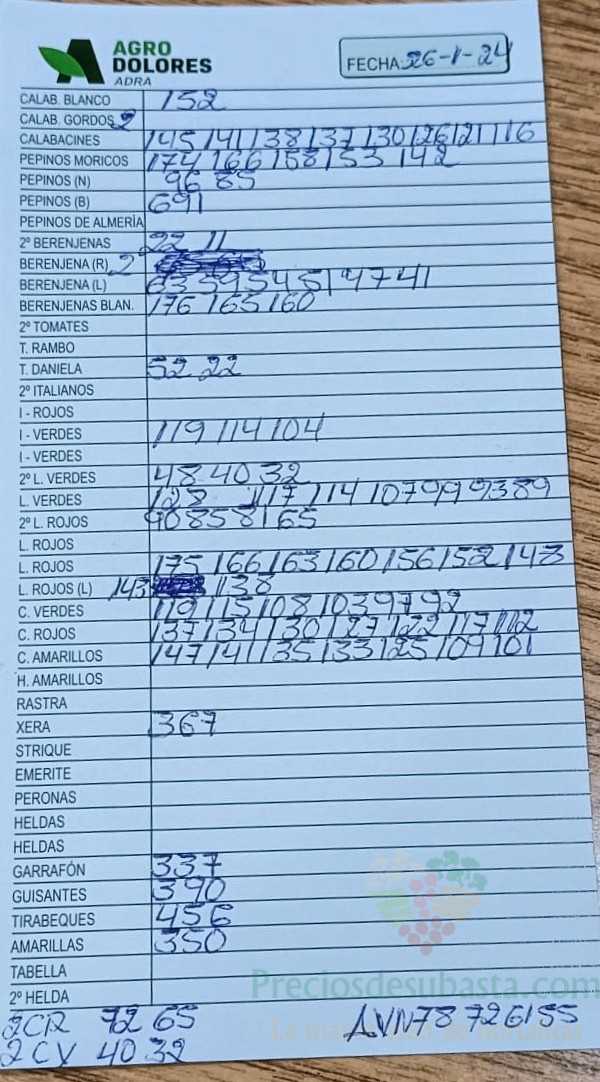 AGRO
DOLORES
ADRA
FECHA: 26-1-24
CALAB. BLANCO 152
CALAB. GORDOS 2
CALABACINES 145 141 138 137 130 126 121 116
PEPINOS MORICOS 174 166 158 153 142
PEPINOS (N) 96 85
PEPINOS (B) 691
PEPINOS DE ALMERÍA
2º BERENJENAS 22 11
BERENJENA (R) 2
BERENJENA (L) 63 59 54 51 47 41
BERENJENAS BLAN. 176 165 160
2º TOMATES
T. RAMBO
T. DANIELA 52 22
2º ITALIANOS
I - ROJOS
I - VERDES 119 114 104
I - VERDES
2º L. VERDES 48 40 32
L. VERDES 128 117 114 107 99 93 89
2º L. ROJOS 90 85 81 65
L. ROJOS
L. ROJOS 175 166 163 160 156 152 147
L. ROJOS (L) 143 138
C. VERDES 119 115 108 103 97 92
C. ROJOS 137 134 130 127 122 117 112
C. AMARILLOS 147 141 135 133 125 109 101
H. AMARILLOS
RASTRA
XERA 367
STRIQUE
EMERITE
PERONAS
HELDAS
HELDAS
GARRAFÓN 337
GUISANTES 390
TIRABEQUES 456
AMARILLAS 350
TABELLA
2º HELDA
Preciosdesubasta.com
2CR 72 65
2CV 40 32